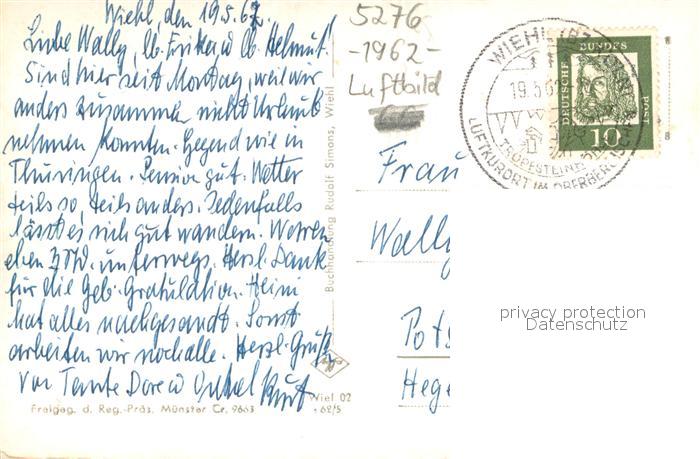 Wiehl, den 19.5.62.
Liebe Wally, lb. Frike u lb. Helmut!
Sind hier seit Montag, weil wir
anders zusammen nicht Urlaub
nehmen konnten. Gegend wie in
Thüringen. Pension gut. Wetter
teils so, teils anders. Jedenfalls
lässt es sich gut wandern. Waren
eben 3 Std. unterwegs. Herzl. Dank
für die Geb. Gratulation. Heini
hat alles nachgesandt. Sonst
arbeiten wir noch alle. Herzl. Grüße
von Tante Dore u Onkel Kurt
Freigeg. d. Reg.-Präs. Münster Cr. 9663
Wiel 02
62/5
Buchhandlung Rudolf Simons, Wiehl
5276
-1962-
Luftbild
WIEHL (BZ KÖLN)
19.5.62
TROPFSTEINHÖHLE
LUFTKURORT IM OBERBERGISCHEN
DEUTSCHE BUNDESPOST
10
Frau
Wally
Pots
Hege
privacy protection
Datenschutz